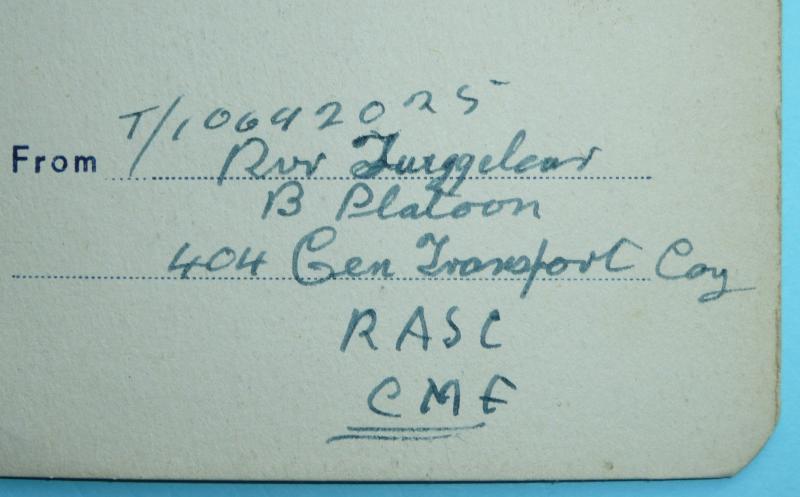 T/10642025
From Dvr
B Platoon
404 Gen Transport Coy
RASC
CMF